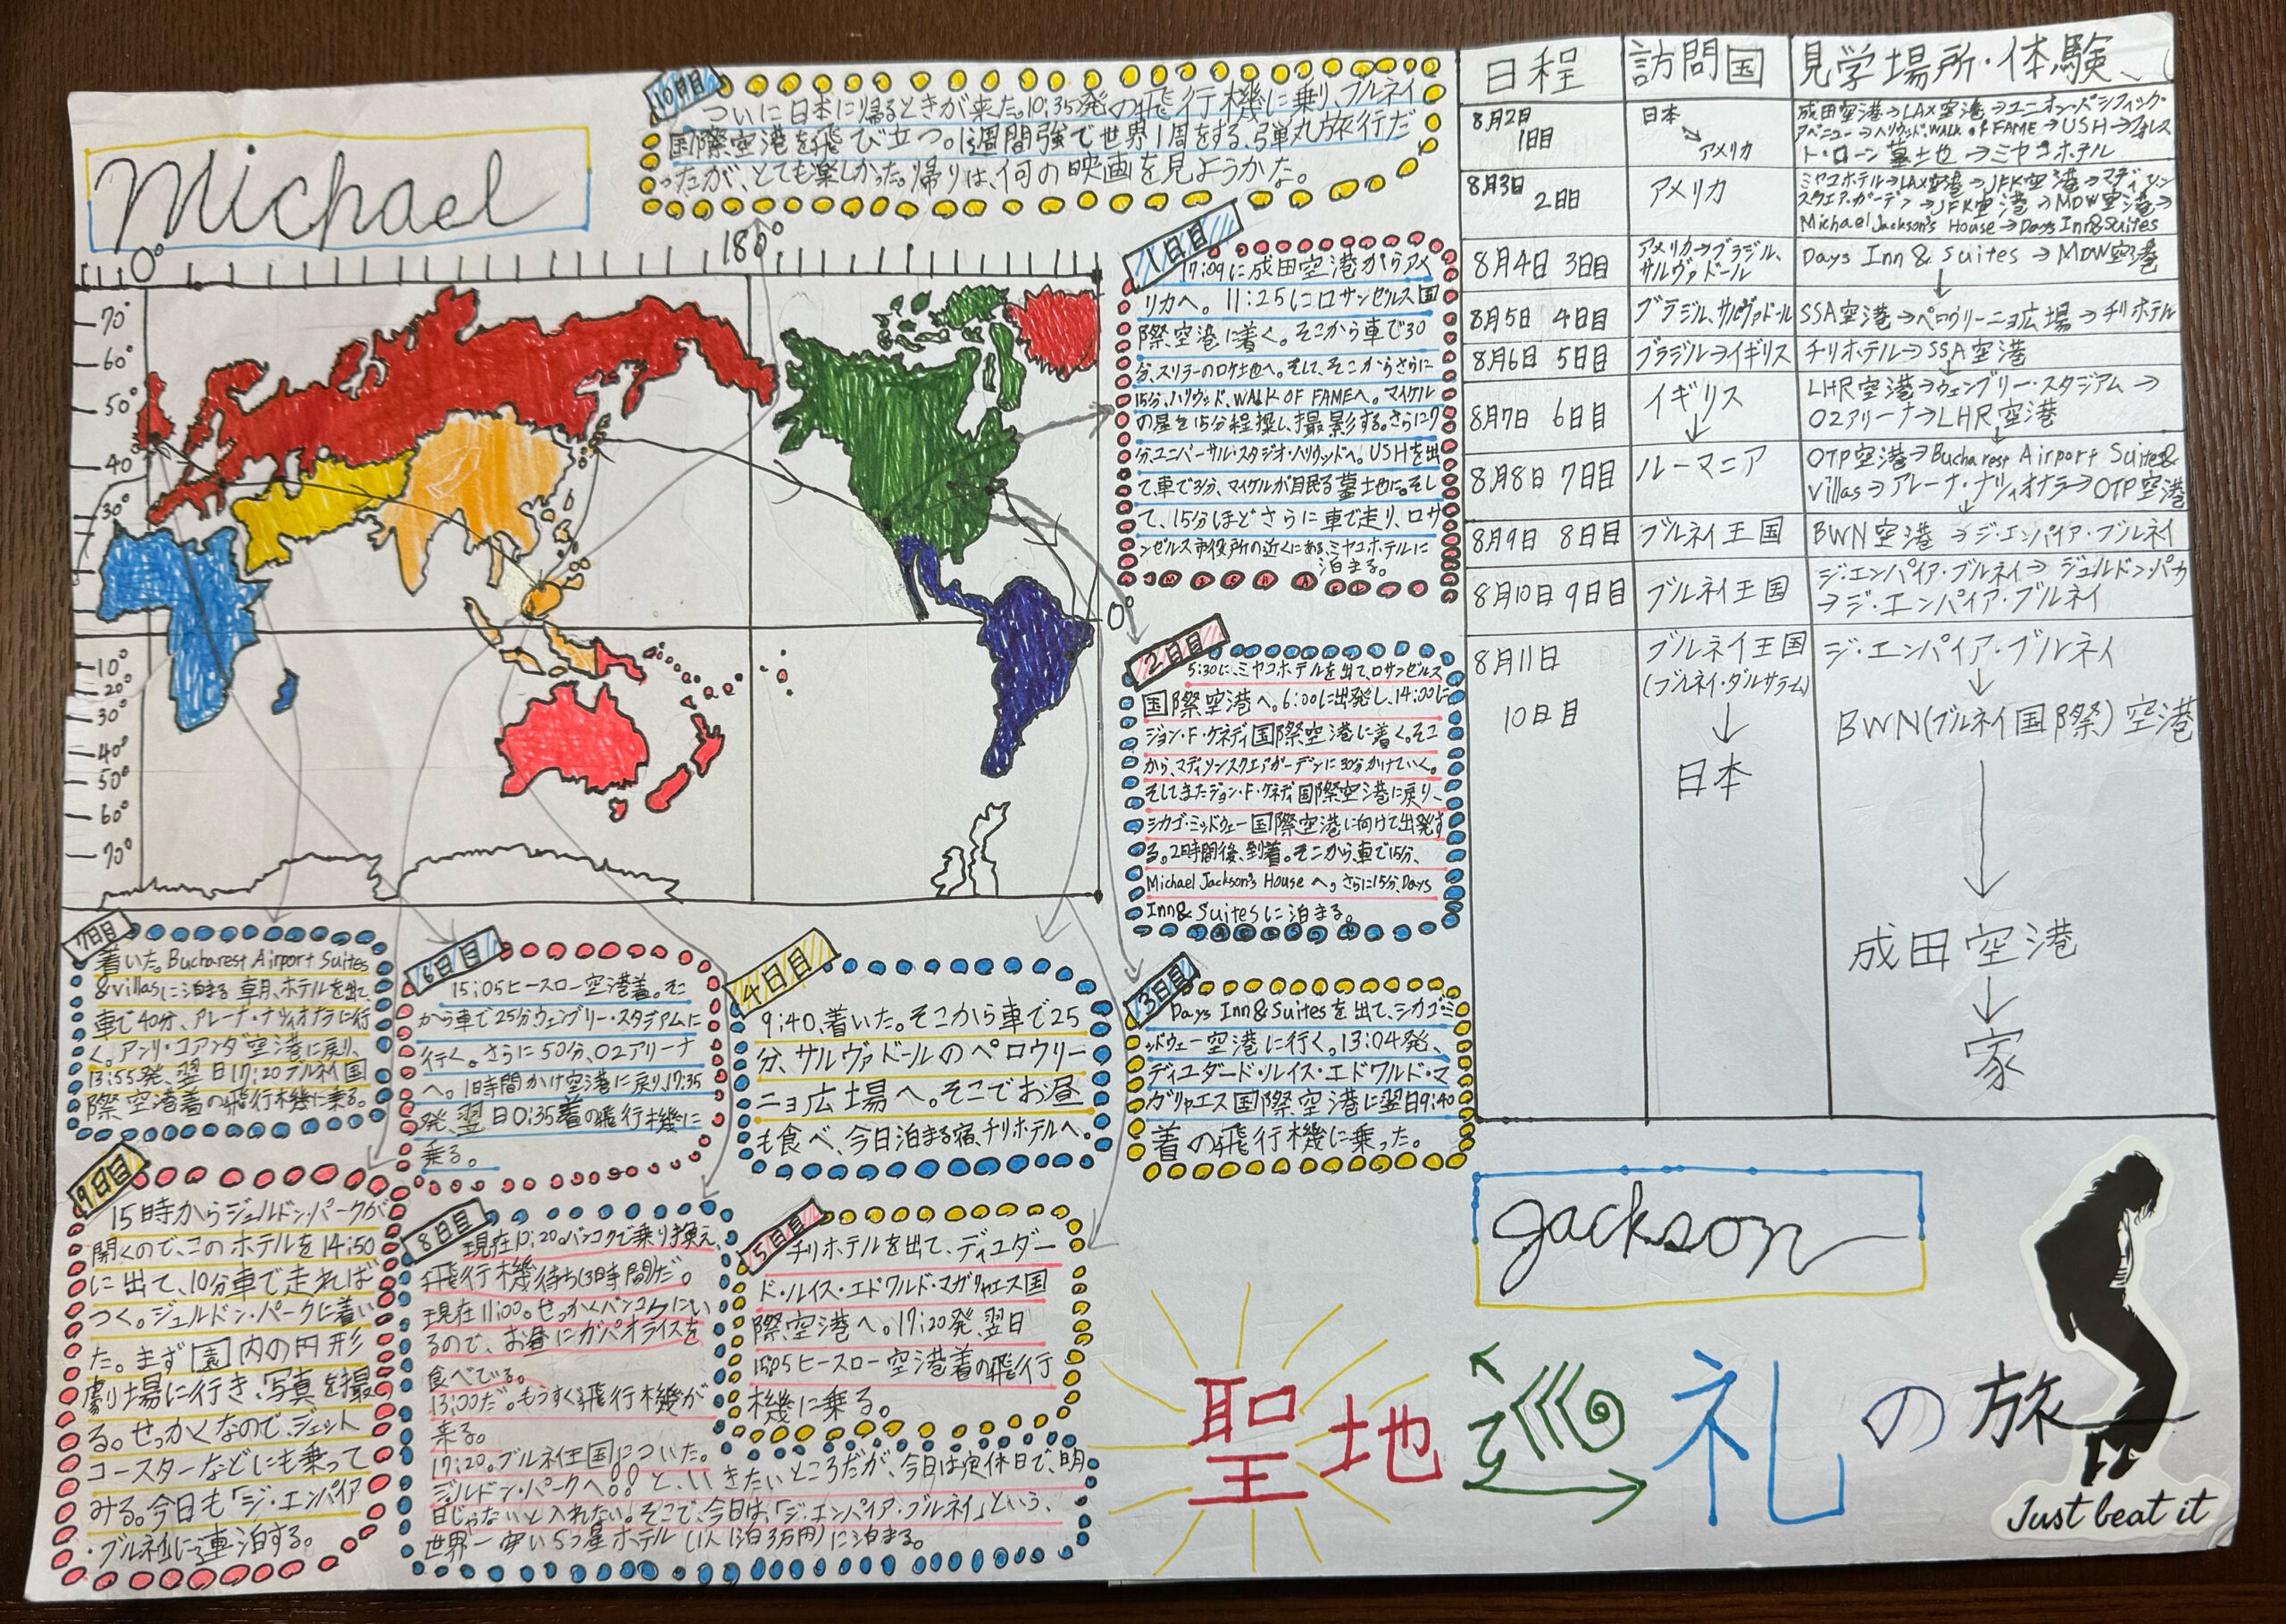 Michael
10日目
ついに日本に帰るときが来た。10:35発の飛行機に乗り、ブルネイ
国際空港を飛び立つ。1週間強で世界1周をする、弾丸旅行だ
ったが、とても楽しかった。帰りは、何の映画を見ようかな。
0° 180°
70°
60°
50°
40
30°
0°
10°
20°
30°
40°
50°
60°
70°
1日目
17:09に成田空港からアメ
リカへ。11:25にロサンゼルス国
際空港に着く。そこから車で30
分、スリラーのロケ地へ。そして、そこからさらに
15分、ハリウッド、WALK OF FAMEへ。マイケル
の星を15分程探し、撮影する。さらに
分、ユニバーサル・スタジオ・ハリウッドへ。USHを出
て、車で3分、マイケルが眠る墓土地に。そし
て、15分ほどさらに車で走り、ロサ
ンゼルス市役所の近くにある、ミヤコホテルに
泊まる。
2日目
5:30に、ミヤコホテルを出て、ロサンゼルス
国際空港へ。6:00に出発し、14:00に
ジョン・F・ケネディ国際空港に着く。そこ
から、マディソンスクエアガーデンに30分かけていく。
そしてまたジョン・F・ケネディ国際空港に戻り、
シカゴ・ミッドウェー国際空港に向けて出発す
る。2時間後、到着。そこから、車で15分、
Michael Jackson's House へ。さらに15分、Days
Inn& Suitesに泊まる。
3日目
Days Inn&Suitesを出て、シカゴ・ミ
ッドウェー空港に行く。13:04発、
ディユダード・ルイス・エドワルド・マ
ガリャエス国際空港に翌日9:40
着の飛行機に乗った。
4日目
9:40、着いた。そこから車で25
分、サルヴァドールのペロウリー
ニョ広場へ。そこでお昼
も食べ、今日泊まる宿、チリホテルへ。
5日目
チリホテルを出て、ディユダー
ド・ルイス・エドワルド・マガリャエス国
際空港へ。17:20発、翌日
15:05ヒースロー空港着の飛行
機に乗る。
6日目
15:05ヒースロー空港着。そこ
から車で25分ウェンブリー・スタジアムに
行く。さらに50分、O2アリーナ
へ。1時間かけ空港に戻り、17:35
発、翌日0:35着の飛行機に
乗る。
7日目
着いた。Bucharest Airport Suites
&villasに泊まる 朝、ホテルを出て、
車で40分、アレーナ・ナツィオナラに行
く。アンリ・コアンダ空港に戻り、
13:55発、翌日17:20ブルネイ国
際空港着の飛行機に乗る。
8日目
現在10:20。バンコクで乗り換え、
飛行機待ち(3時間)だ。
現在11:00。せっかくバンコクにい
るので、お昼にガパオライスを
食べてる。
13:00だ。もうすぐ飛行機が
来る。
17:20。ブルネイ王国についた。
ジルドン・パークへ!!といきたいところだが、今日は定休日で、明
日じゃないと入れたい。そこで、今日は、「ジ・エンパイア・ブルネイ」という、
世界一安い5つ星ホテル(1人1泊3万円)に泊まる。
9日目
15時からジュルドン・パークが
開くので、このホテルを14:50
に出て、10分車で走れば
つく。ジュルドン・パークに着い
た。まず園内の円形
劇場に行き、写真を撮
る。せっかくなので、ジェット
コースターなどにも乗って
みる。今日も「ジ・エンパイア
・ブルネイ」に連泊する。
日程 訪問国 見学場所・体験
8月2日 1日目 日本 アメリカ 成田空港→LAX空港→ユニオン・パシフィック・
アベニュー→ハリウッドWALK of FAME→USH→フォレス
ト・ローン墓土地→ミヤコホテル
8月3日 2日目 アメリカ ミヤコホテル→LAX空港→JFK空港→マディソン
スクエア・ガーデン→JFK空港→MDW空港→
Michael Jackson's House→Days Inn&Suites
8月4日 3日目 アメリカ→ブラジル、サルヴァドール Days Inn & Suites → MDW空港
8月5日 4日目 ブラジル、サルヴァドール SSA空港→ペロウリーニョ広場→チリホテル
8月6日 5日目 ブラジル→イギリス チリホテル→SSA空港
8月7日 6日目 イギリス LHR空港→ウェンブリー・スタジアム→
O2アリーナ→LHR空港
8月8日 7日目 ルーマニア OTP空港→Bucharest Airport Suites&
Villas→アレーナ・ナツィオナラ→OTP空港
8月9日 8日目 ブルネイ王国 BWN空港→ジ・エンパイア・ブルネイ
8月10日 9日目 ブルネイ王国 ジ・エンパイア・ブルネイ→ジュルドン・パーク
→ジ・エンパイア・ブルネイ
8月11日 10日目 ブルネイ王国 ジ・エンパイア・ブルネイ
(ブルネイ・ダルサラーム)
↓ BWN(ブルネイ国際)空港
日本
成田空港
家
Jackson
聖地巡礼の旅
Just beat it